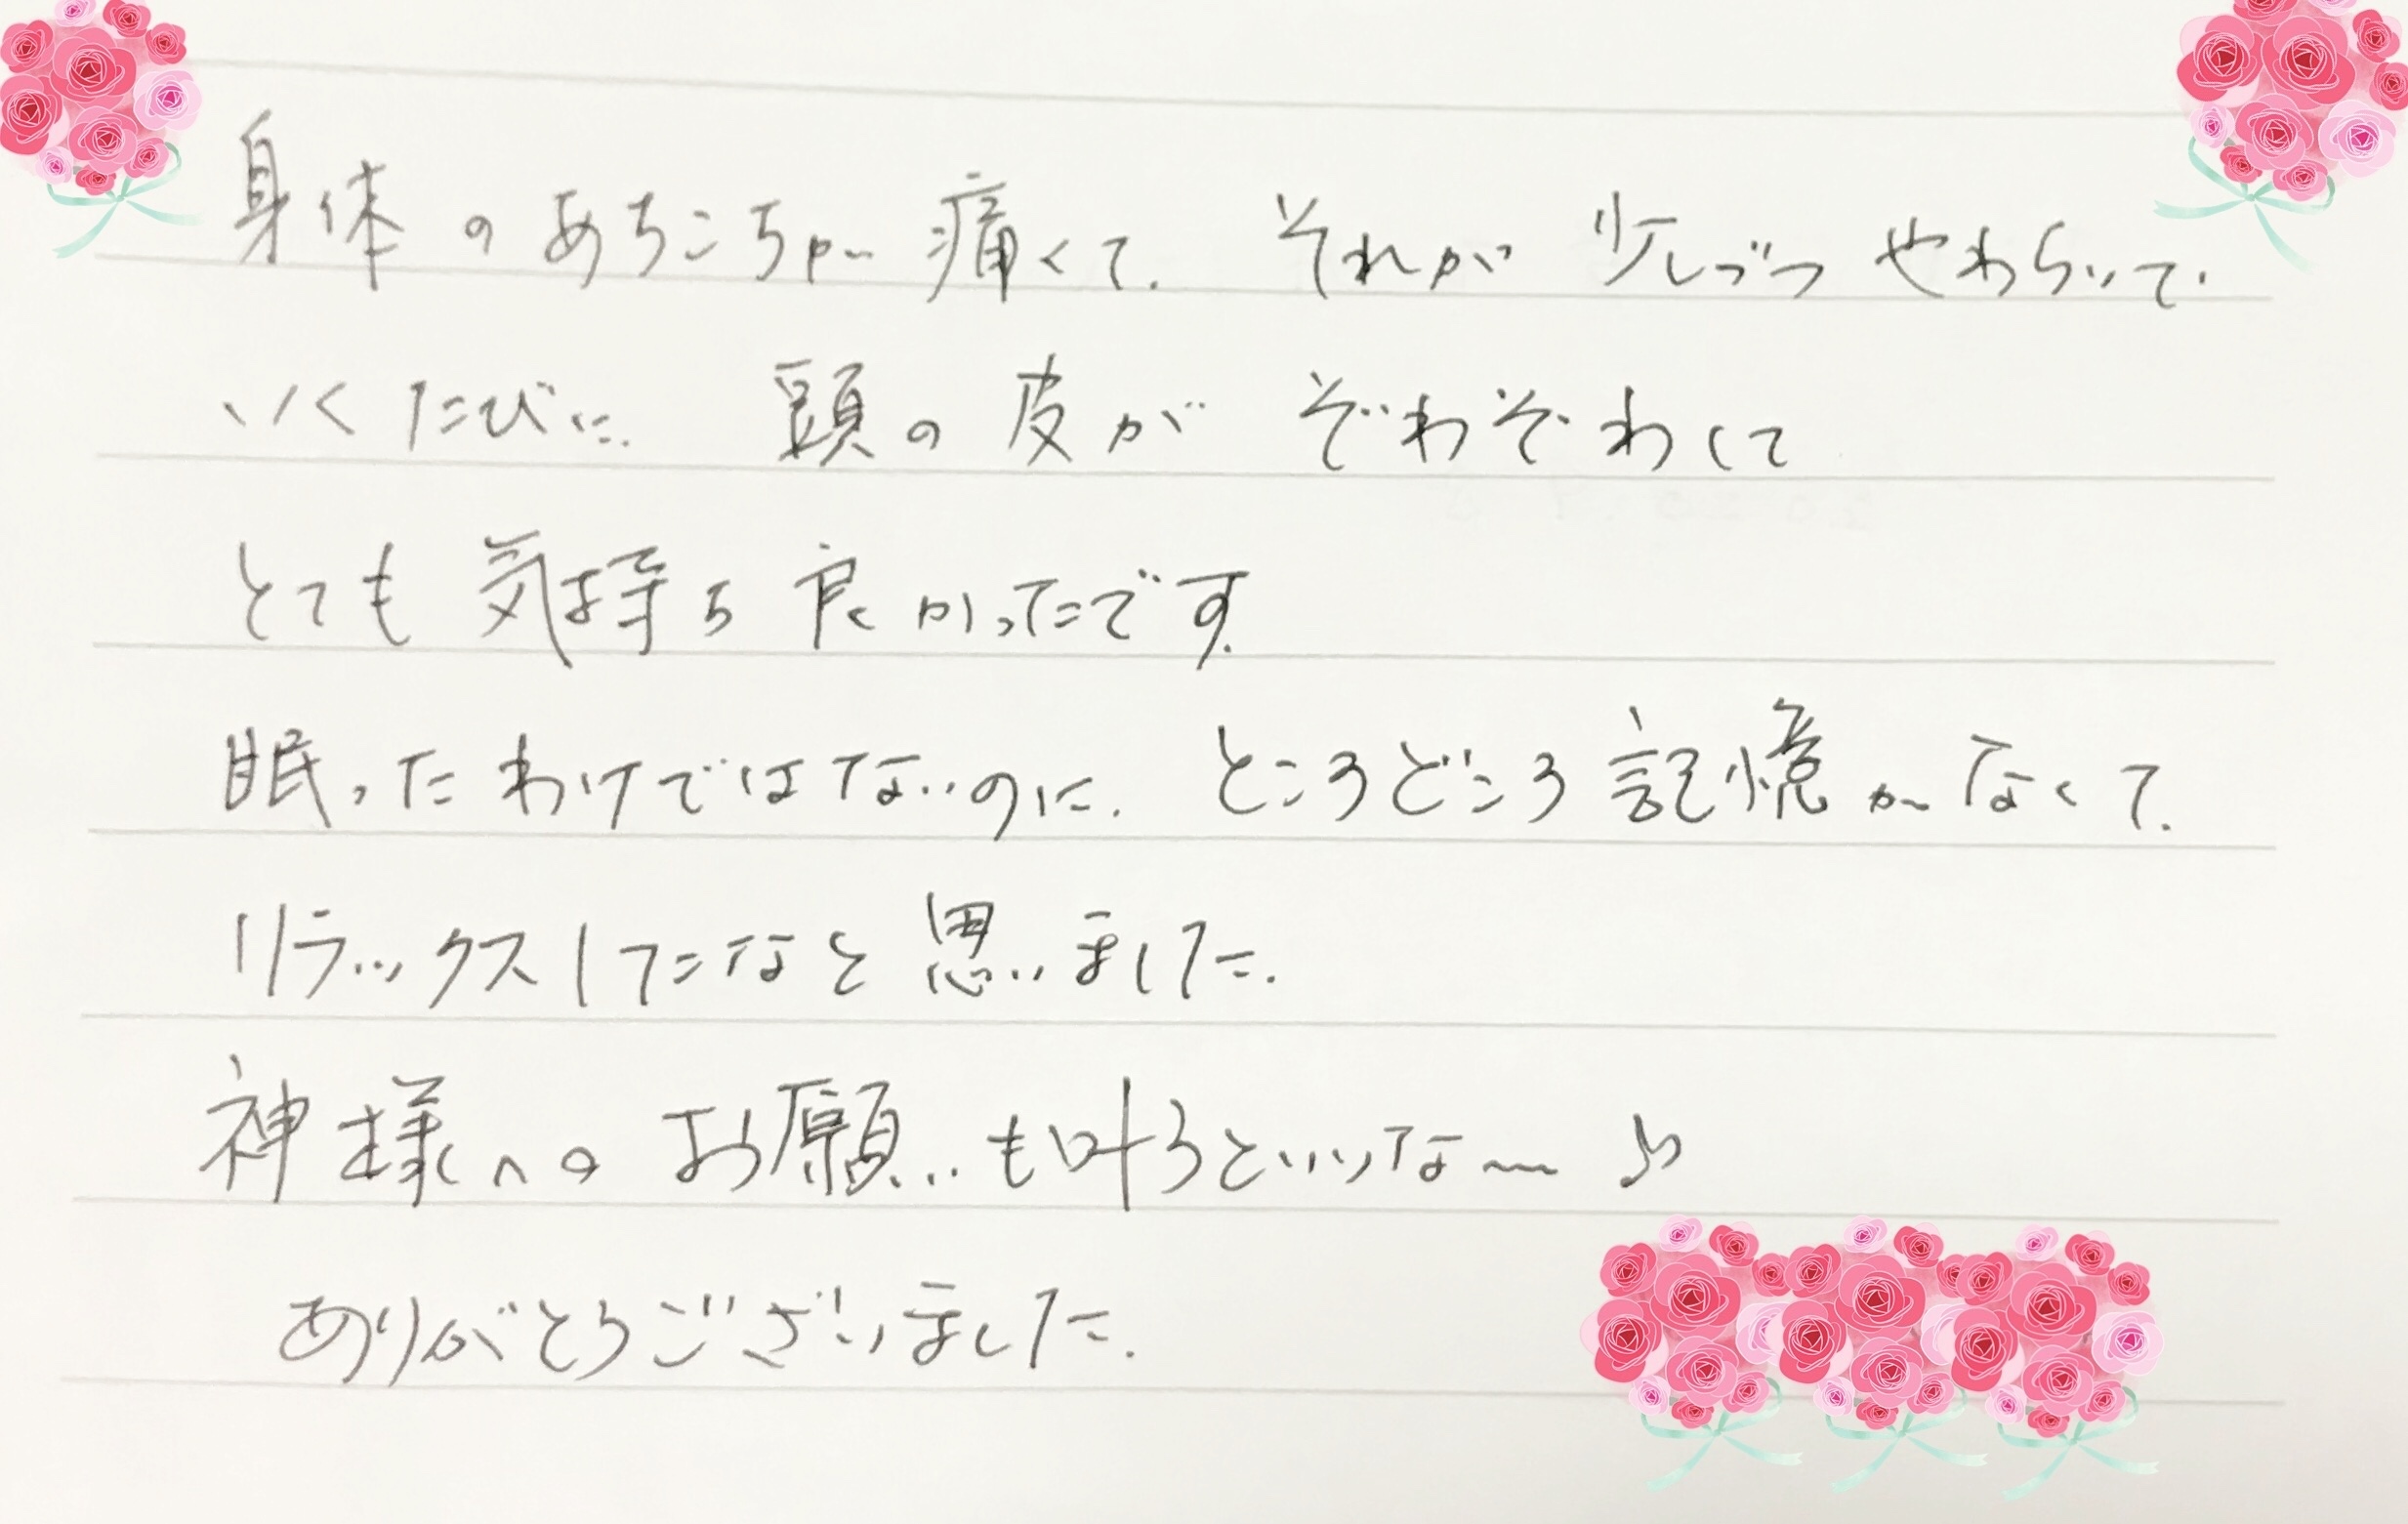 身体のあちこちが痛くて、それが少しづつやわらいで、
いくたびに、頭の皮がぞわぞわして
とても気持ち良かったです。
眠ったわけではないのに、ところどころ記憶がなくて、
リラックスしたなと思いました。
神様へのお願いも叶うといいな〜♪
ありがとうございました。